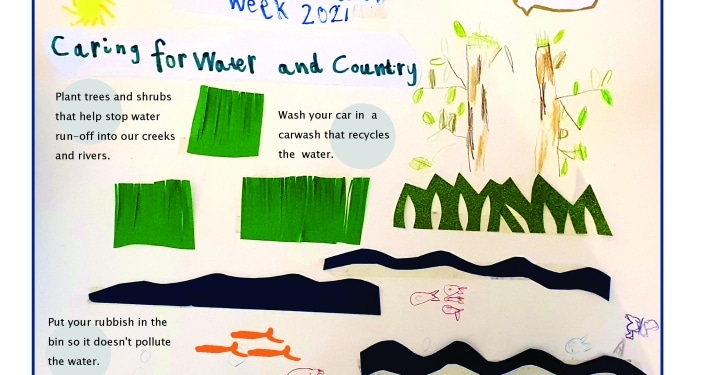 Week 2021
Caring for Water and Country
Plant trees and shrubs
that help stop water
run-off into our creeks
and rivers.
Wash your car in a
carwash that recycles
the water.
Put your rubbish in the
bin so it doesn't pollute
the water.